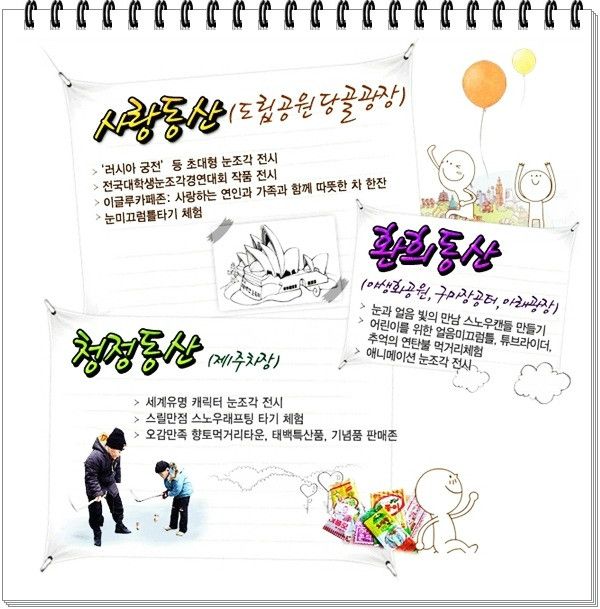 사랑동산 (도립공원 당골광장)
> '러시아 궁전' 등 초대형 눈조각 전시
> 전국대학생눈조각경연대회 작품 전시
> 이글루카페존: 사랑하는 연인과 가족과 함께 따뜻한 차 한잔
> 눈미끄럼틀타기 체험
환희동산
(야생화공원, 구미장공터, 아래광장)
> 눈과 얼음 빛의 만남 스노우캔들 만들기
> 어린이를 위한 얼음미끄럼틀, 튜브라이더,
추억의 연탄불 먹거리체험
> 애니메이션 눈조각 전시
청정동산 (제1주차장)
> 세계유명 캐릭터 눈조각 전시
> 스릴만점 스노우래프팅 타기 체험
> 오감만족 향토먹거리타운, 태백특산품, 기념품 판매존